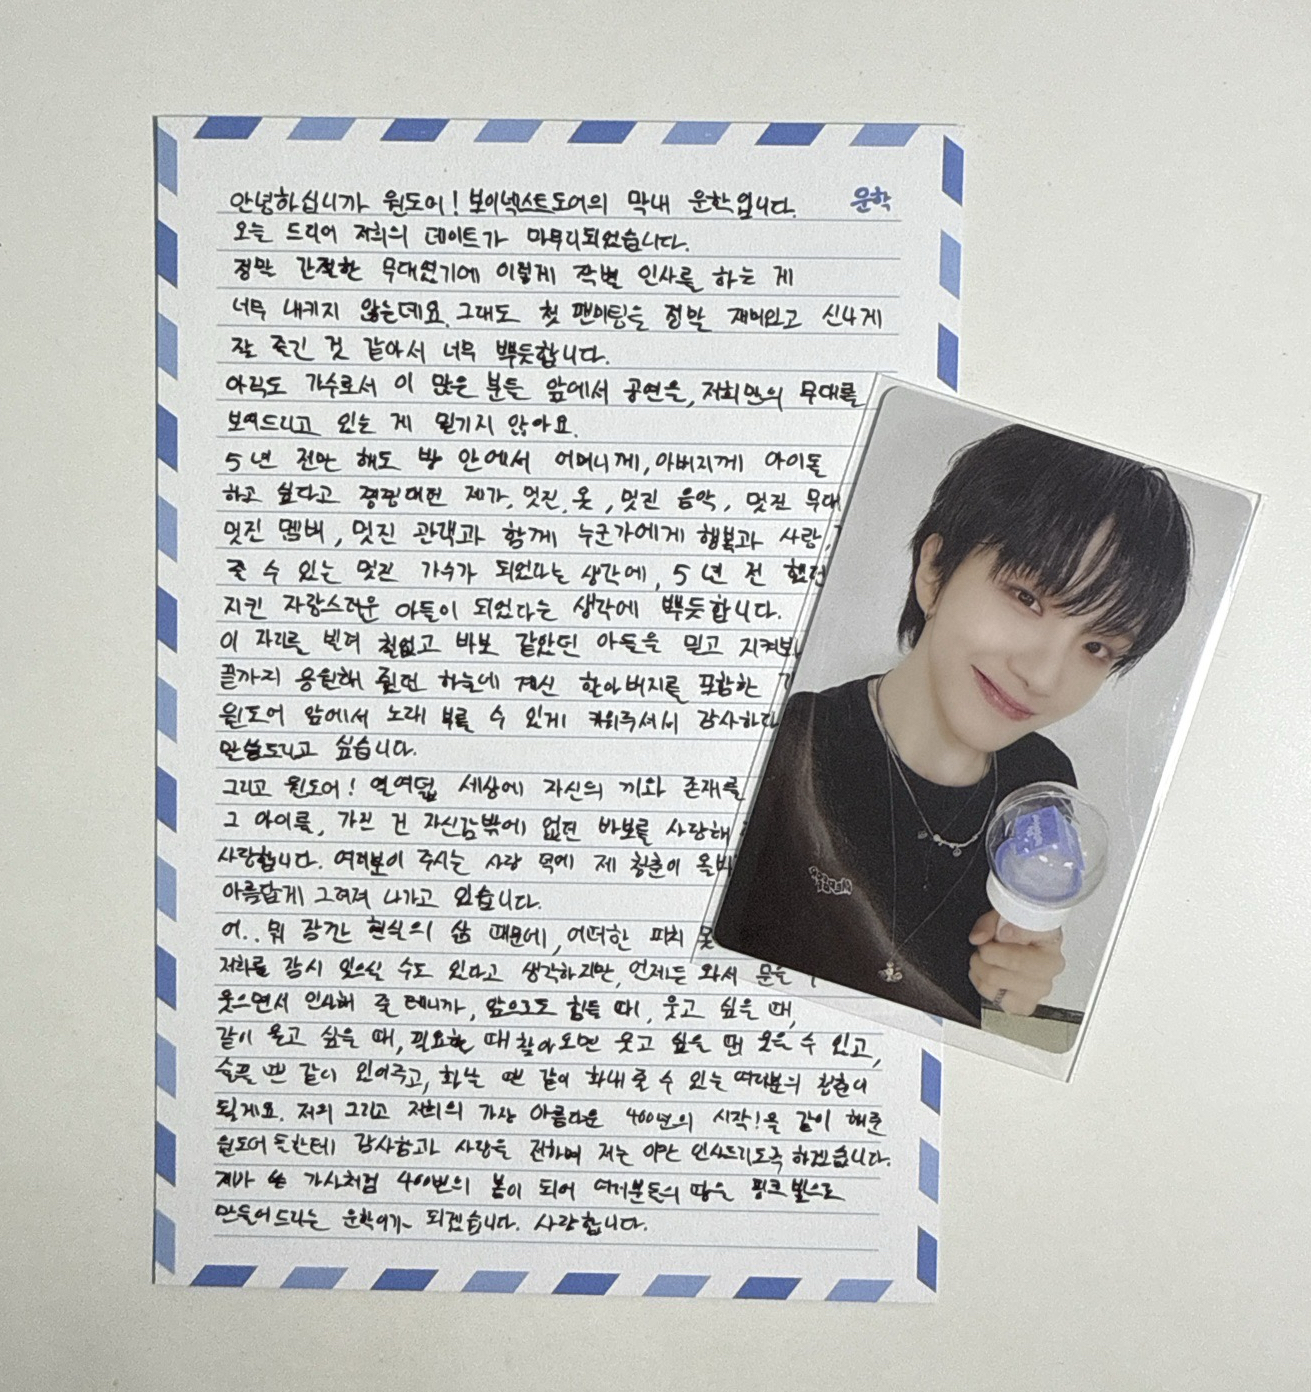 안녕하십니까 원도어! 보이넥스트도어의 막내 운학입니다.
운학
오늘 드디어 저희의 데이트가 마무리되었습니다.
정말 간절한 무대였기에 이렇게 작별 인사를 하는 게
너무 내키지 않는데요. 그래도 첫 팬미팅을 정말 재미있고 신나게
잘 즐긴 것 같아서 너무 뿌듯합니다.
아직도 가수로서 이 많은 분들 앞에서 공연을, 저희만의 무대를
보여드리고 있는 게 믿기지 않아요.
5년 전만 해도 방 안에서 어머니께, 아버지께 아이돌
하고 싶다고 찡찡대던 제가, 멋진 옷, 멋진 음악, 멋진 무대
멋진 멤버, 멋진 관객과 함께 누군가에게 행복과 사랑,
줄 수 있는 멋진 가수가 되었다는 생각에, 5년 전 했던
지킨 자랑스러운 아들이 되었다는 생각에 뿌듯합니다.
이 자리를 빌려 철없고 바보 같았던 아들을 믿고 지켜봐
끝까지 응원해 줬던 하늘에 계신 할아버지를 포함한
원도어 앞에서 노래 부를 수 있게 키워주셔서 감사하다
말씀드리고 싶습니다.
그리고 원도어! 열여덟 세상에 자신의 끼와 존재를
그 아이를, 가진 건 자신감밖에 없던 바보를 사랑해
사랑합니다. 여러분이 주시는 사랑 덕에 제 청춘이 올바
아름답게 그려져 나가고 있습니다.
어.. 뭐 잠깐 현실의 삶 때문에, 어떠한 피치 못
저희를 잠시 잊으실 수도 있다고 생각하지만, 언제든 와서 문을
웃으면서 인사해 줄 테니까, 앞으로도 힘들 때, 웃고 싶을 때,
같이 울고 싶을 때, 필요할 때 찾아오면 웃고 싶을 땐 웃을 수 있고,
슬플 땐 같이 있어주고, 화날 땐 같이 화내 줄 수 있는 여러분의 청춘이
될게요. 저의 그리고 저희의 가장 아름다운 400년의 시작!을 같이 해준
원도어 들한테 감사함과 사랑을 전하며 저는 이만 인사드리도록 하겠습니다.
제가 쓴 가사처럼 400번의 봄이 되어 여러분들의 땅을 핑크빛으로
만들어드리는 운학이가 되겠습니다. 사랑합니다.